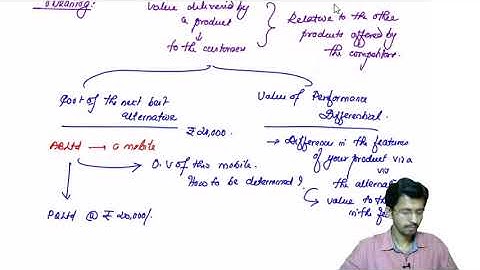 Meaning:
Value delivered by
a product
to the customer
Relative to the other
products offered by
the competitors.
Cost of the next best
alternative
₹ 20,000.
Value of Performance
Differential.
ABLtd → a mobile
O.V of this mobile.
How to be determined?
PQLtd @ ₹ 20,000/.
→ Difference in the features
of your product vis a
vis
the alternat
value to the
in the fe